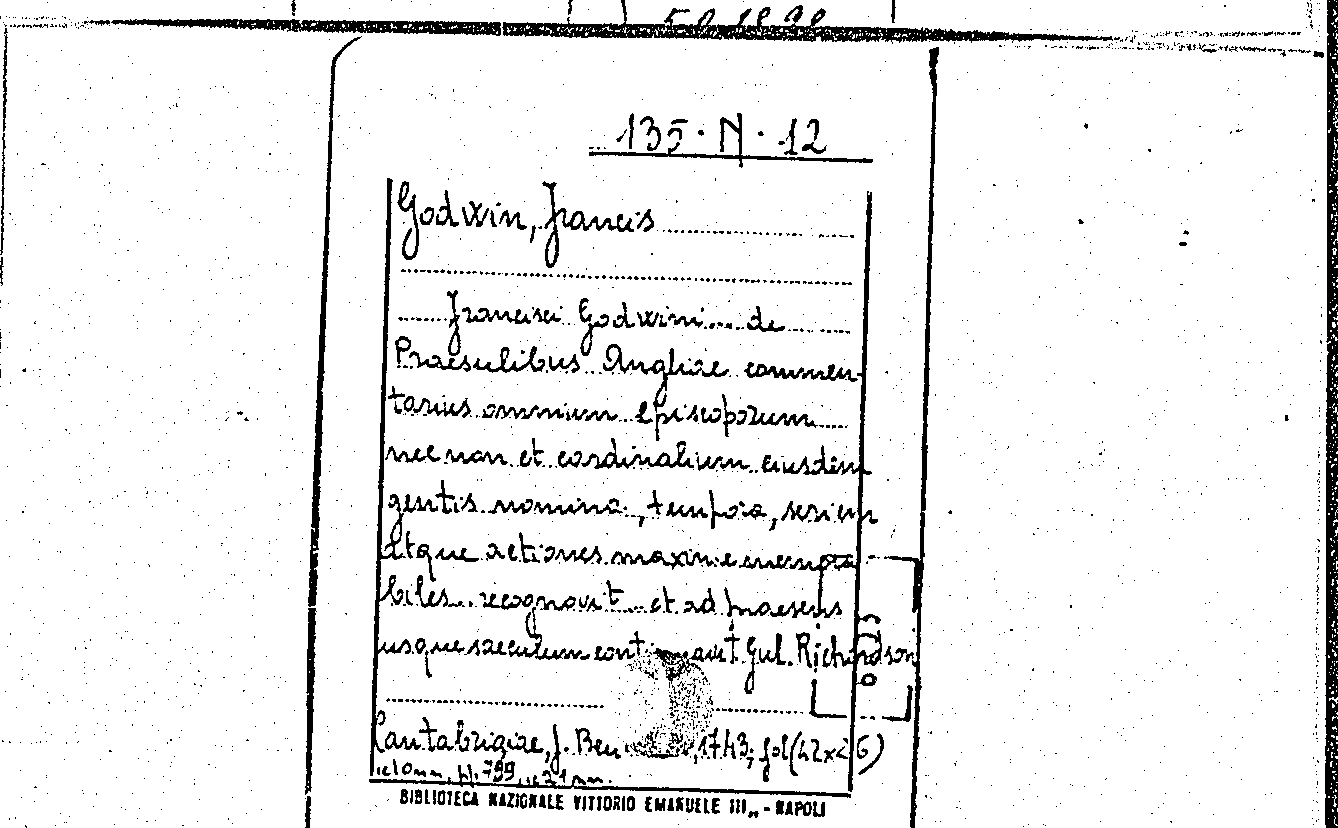 135·N·12
Godwin, Francis
Francisci Godwini... de
Praesulibus Angliae commen-
tarius omnium episcoporum
nec non et cardinalium eiusdem
gentis nomina, tempora, seriem
atque actiones maxime memora
biles... recognovit... et ad praesens
usque saeculum continuavit Gul. Richardson
Cantabrigiae, J. Ben 1743; fol (42x26)
pp. 799
BIBLIOTECA NAZIONALE VITTORIO EMANUELE III„ - NAPOLI